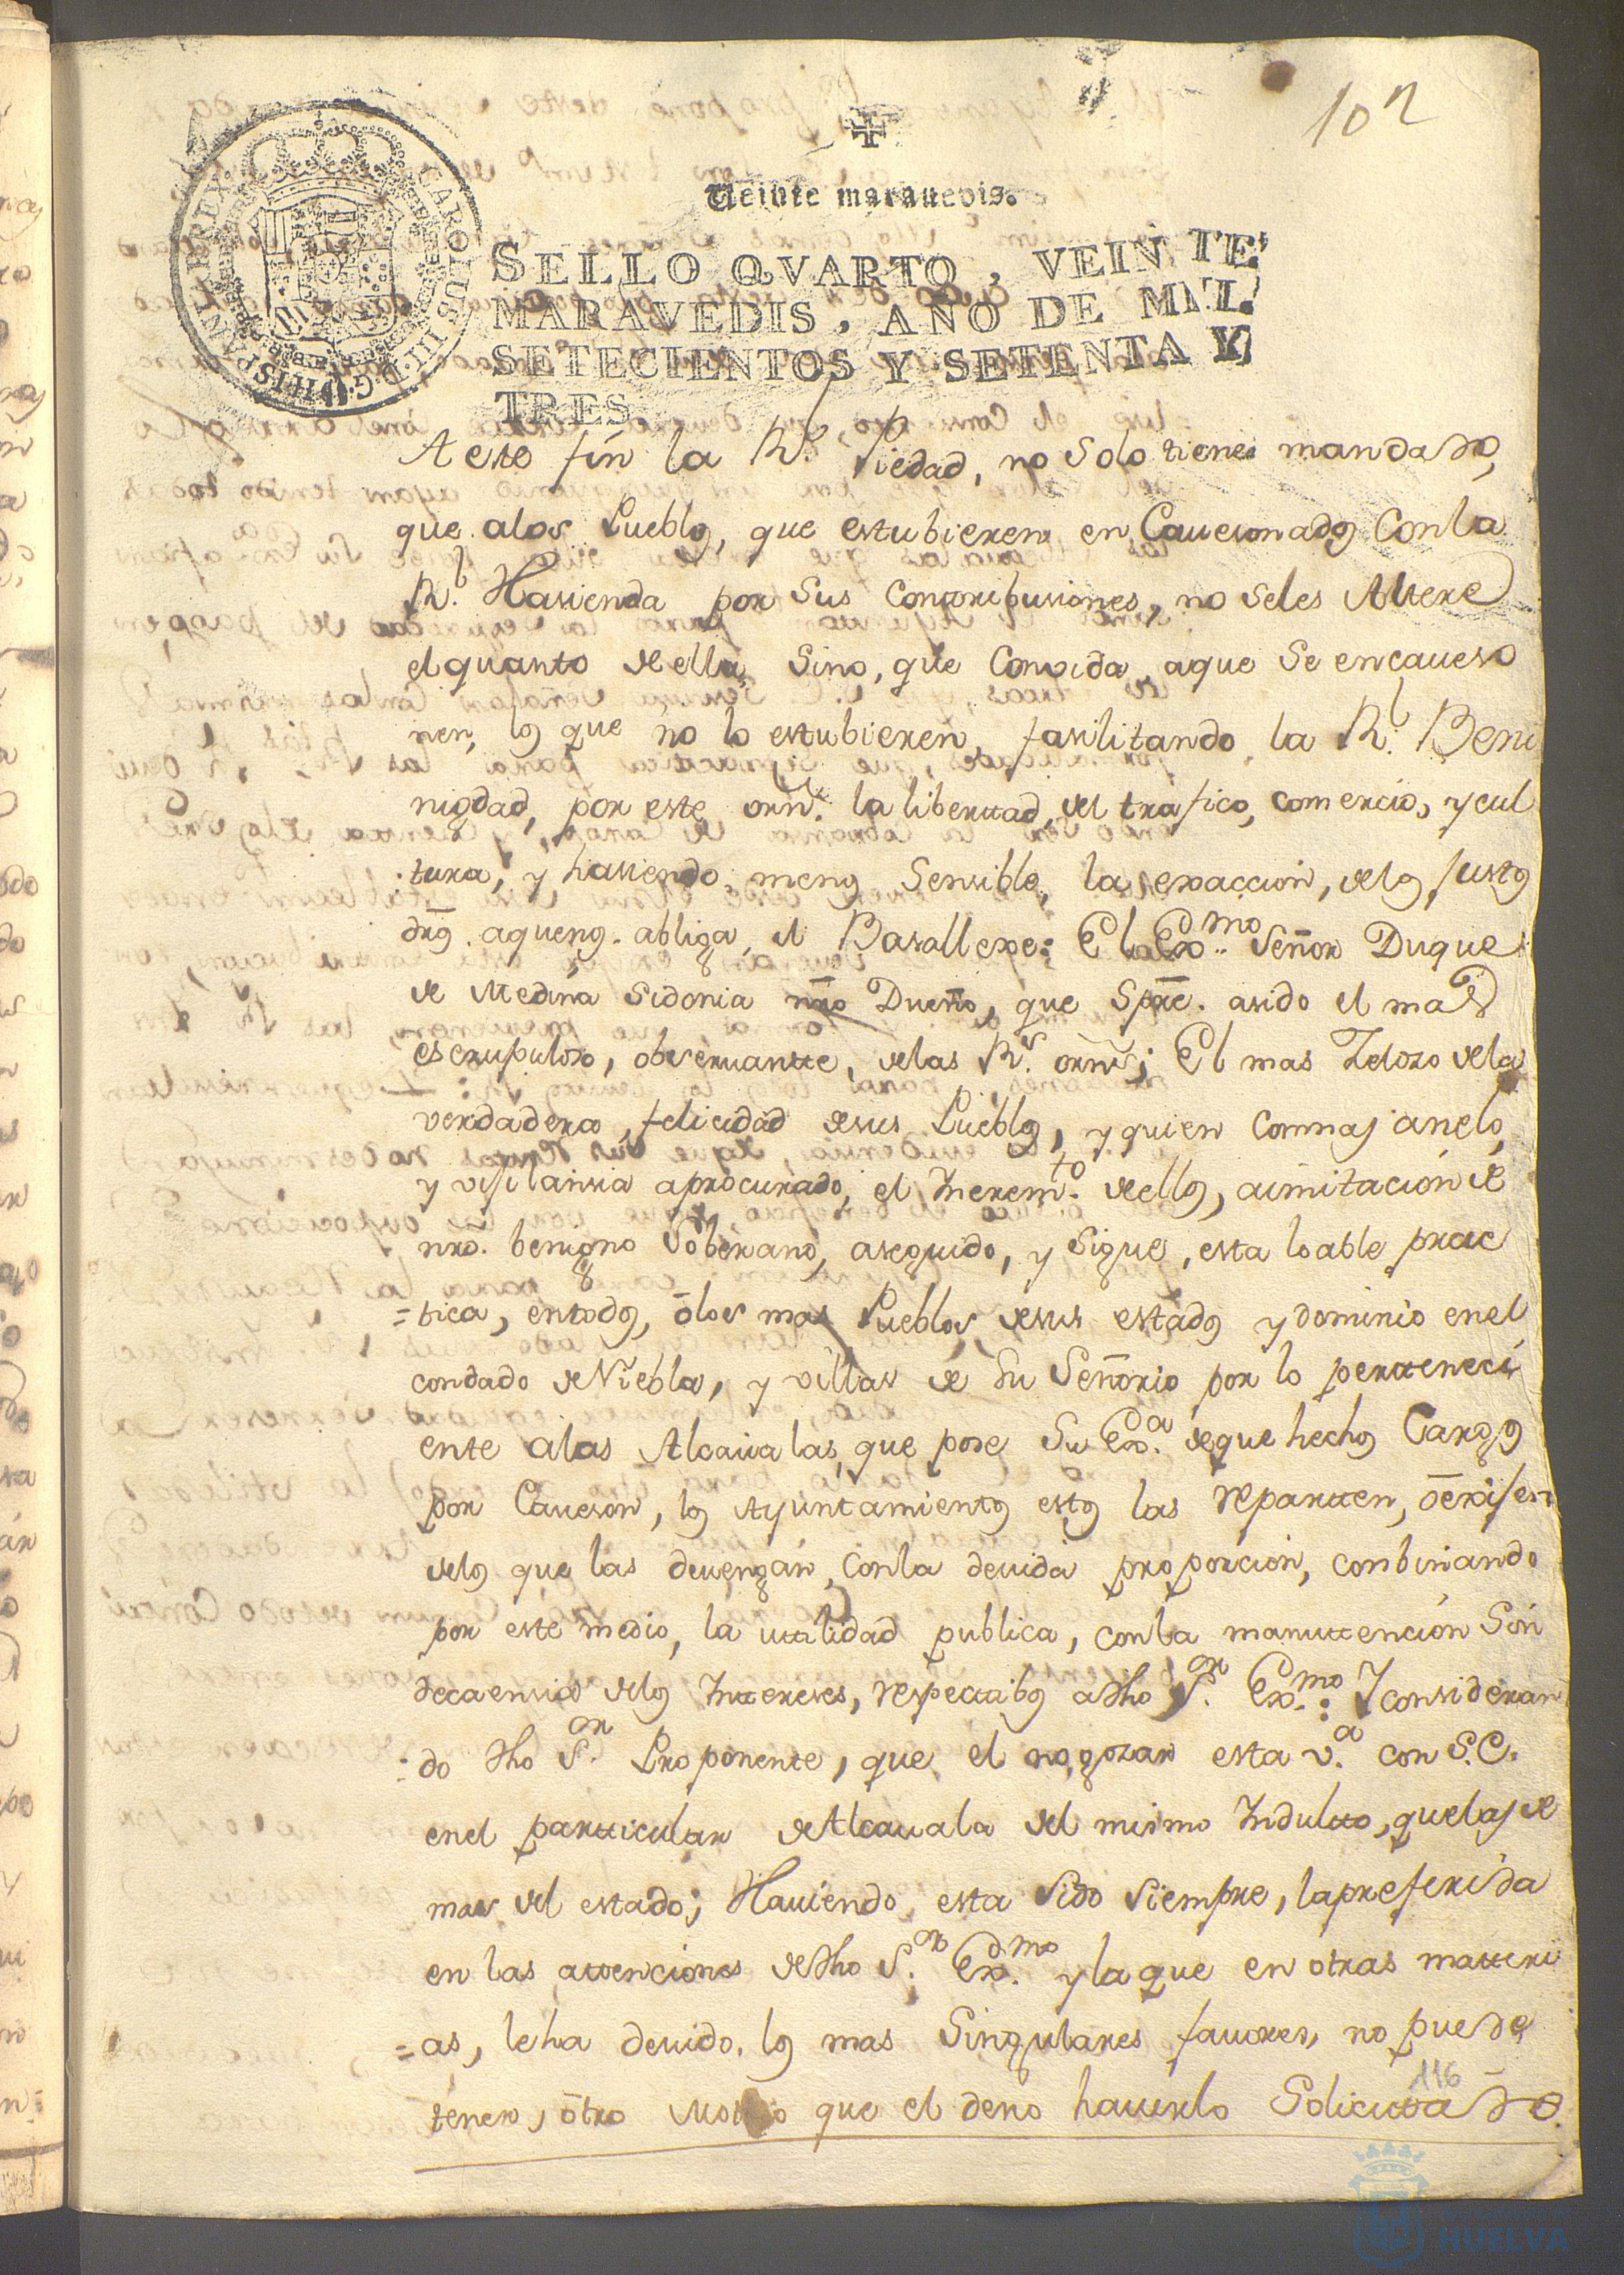 102
Veinte maravedis.
SELLO QVARTO, VEINTE
MARAVEDIS, AÑO DE MIL
SETECIENTOS Y SETENTA Y
TRES.
CAROLUS III D.G. HISPANIAR. REX
A este fin la Rl. Piedad, no solo tiene mandado,
que alos Pueblos, que estubieren en Cavesonados Con la
Rl. Hasienda por sus Contribusiones, no seles Altere
el quanto de ella, Sino, que Convida aque se encaveso
nen, los que no lo estubieren, fasilitando la Rl. Beni
nigdad, por este orn. la libertad, del trafico, comercio, y cul
tura, y hasiendo menos Sensible, la exaccion, delos Justos
dros. aquenos. abliga, el Basallexe: El Exmo. Señor Duque
de Medina Sidonia nro Dueño, que Spre. asido el mas
escrupuloso, observantte, delas Rs. orns; El mas Zelozo dela
verdadera, felicidad desus Pueblos, y quien conmas anelo,
y vijilansia aprocurado, el Increm.to dellos, aimitacion de
nro. benigno Soberano, aseguido, y sigue, esta loable prac
=tica, entodos, ólos mas Pueblos desus estados y dominio enel
condado de Niebla, y villas de Su Señorio por lo perttenecí
ente alas Alcavalas, que pose Su Exa. deque hechos Cargos
por Caveson, los Ayuntamientos estos las repartten, óexijen
delos que las devengan, Conla devida proporcion, conbinando
por este medio, la uttilidad publica, conla manuttencion Sin
decaensia delos Intereses, respecttibos adho Sor. Exmo.: Y consideran
=do dho Sor. Proponente, que el no gozar esta va. con S.E.
enel partticular de Alcavala del mismo Indultto, que las de
mas del estado; Haviendo esta sido siempre, la preferida
en las attenciones dedho Sor. Exmo. y la que en otras matteri
=as, leha devido los mas Singulares favores, no puede
tener, ótro Motivo que el deno haverlo Solicittado.
116
HUELVA